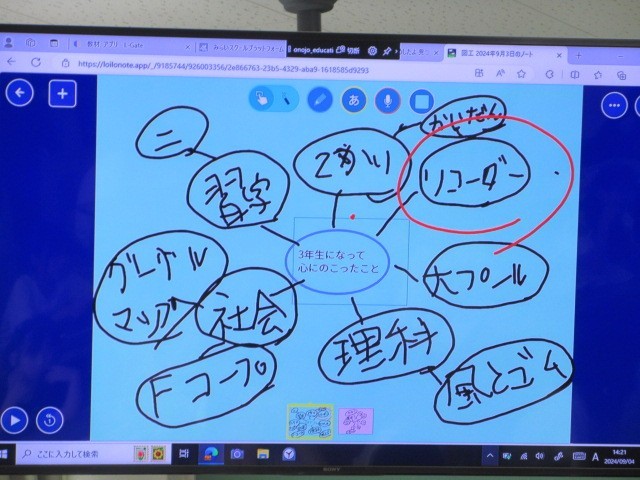 教材・アプリ L-Gate
みらいスクールプラットフォーム
onojo_educati
切断
図工 2024年9月3日のノート
https://loilonote.app/_/9185744/926003356/2e866763-23b5-4329-aba9-1618585d9293
あ
かいだん
二
リコーダー
習字
3年生になって
心にのこったこと
大プール
グーグル
マップ
社会
理科
Fコープ
風とゴム
ここに入力して検索
A
14:21
2024/09/04
SONY